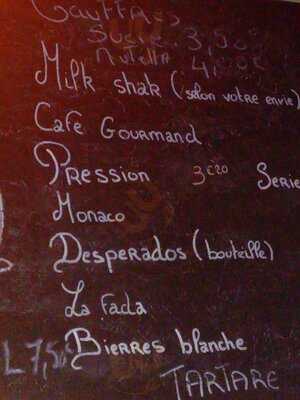 Gauffres
Sucre 3,50€
Nutella 4,00€
Milk shak (selon votre envie)
Café Gourmand
Pression 3€20 Serie
Monaco
Desperados (bouteille)
La Fada
L 7,5 Bierres blanche
TARTARE